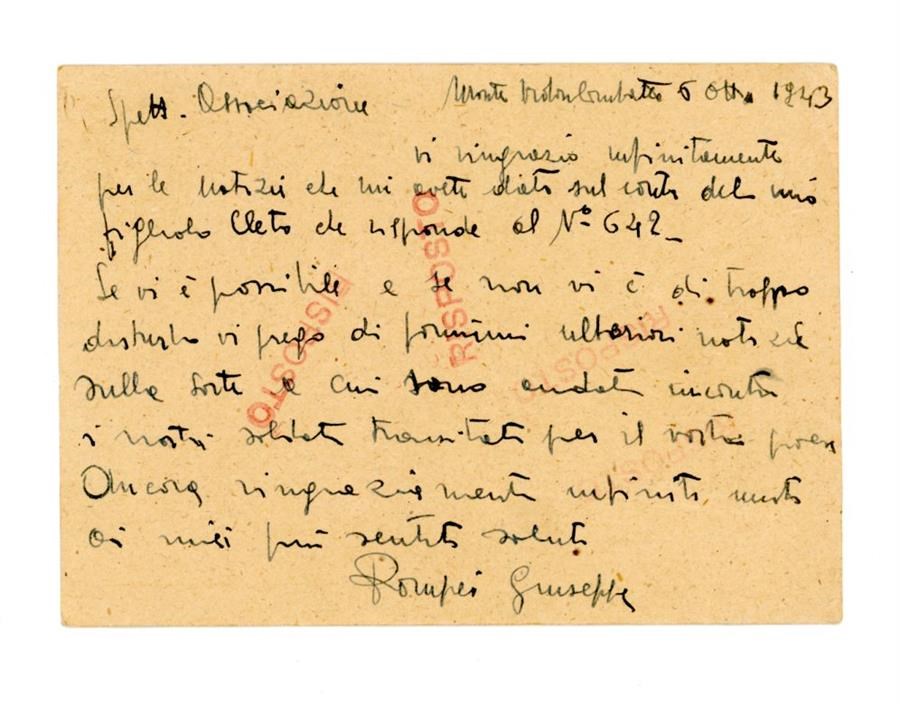 Spett. Associazione Monte Vidon Combatte 6 Ott. 1943
vi ringrazio infinitamente
per le notizie che mi avete dato sul conto del mio
figliolo Cleto che risponde al Nº 642_
Se vi è possibile e se non vi è di troppo
disturbo vi prego di fornirmi ulteriori notizie
sulla sorte a cui sono andati incontro
i nostri soldati transitati per il vostro paese
Ancora ringraziamenti infiniti uniti
ai miei più sentiti saluti
Pompei Giuseppe
RISPOSTO
RISPOSTO
RISPOSTO
RISPOSTO